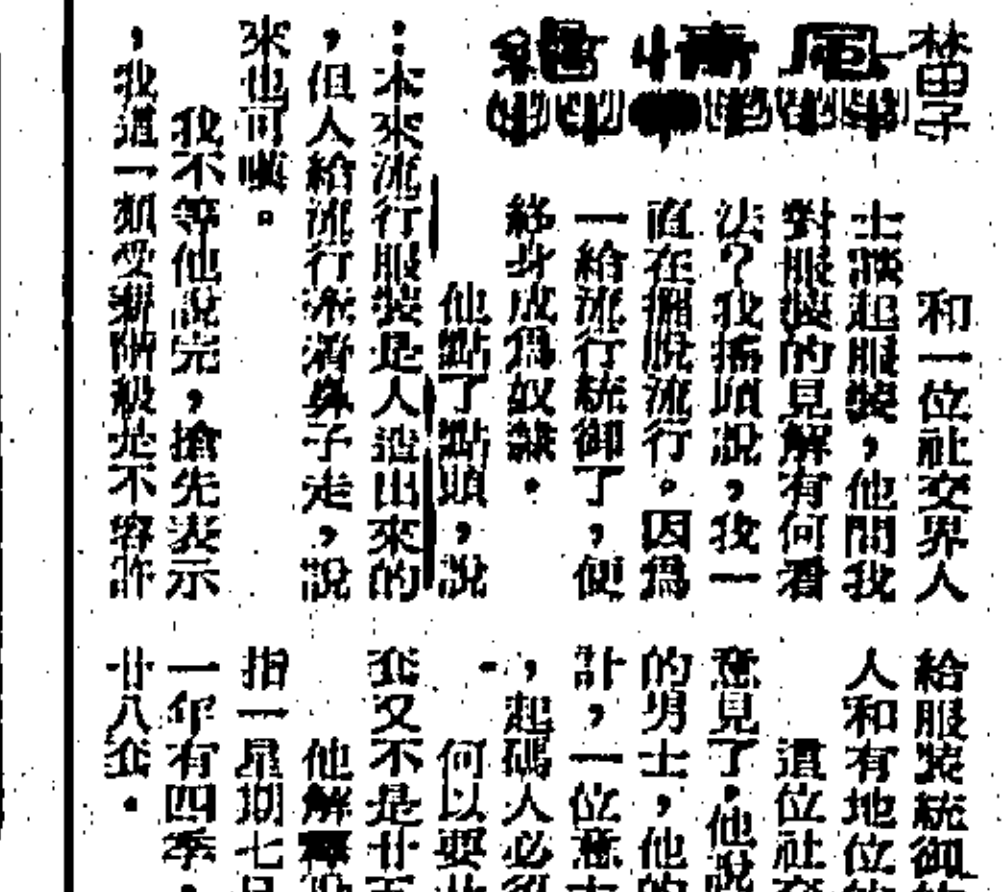 林田子
和一位社交界人
士談起服裝，他問我
對服裝的見解有何看
法？我搖頭說，我一
直在擺脫流行。因爲
一給流行統御了，便
終身成爲奴隸．
他點了點頭，說
：本來流行服裝是人造出來的
，但人給流行牽着鼻子走，說
來也可嘆。
我不等他說完，搶先表示
，我這一類受薪階級是不容許
給服裝統御
人和有地位
這位社交
意見了，他說
的男士，他的
計，一位
，起碼人必須
何以要
套又不是廿五
他解釋說
指一星期七日
一年有四季，
廿八套．